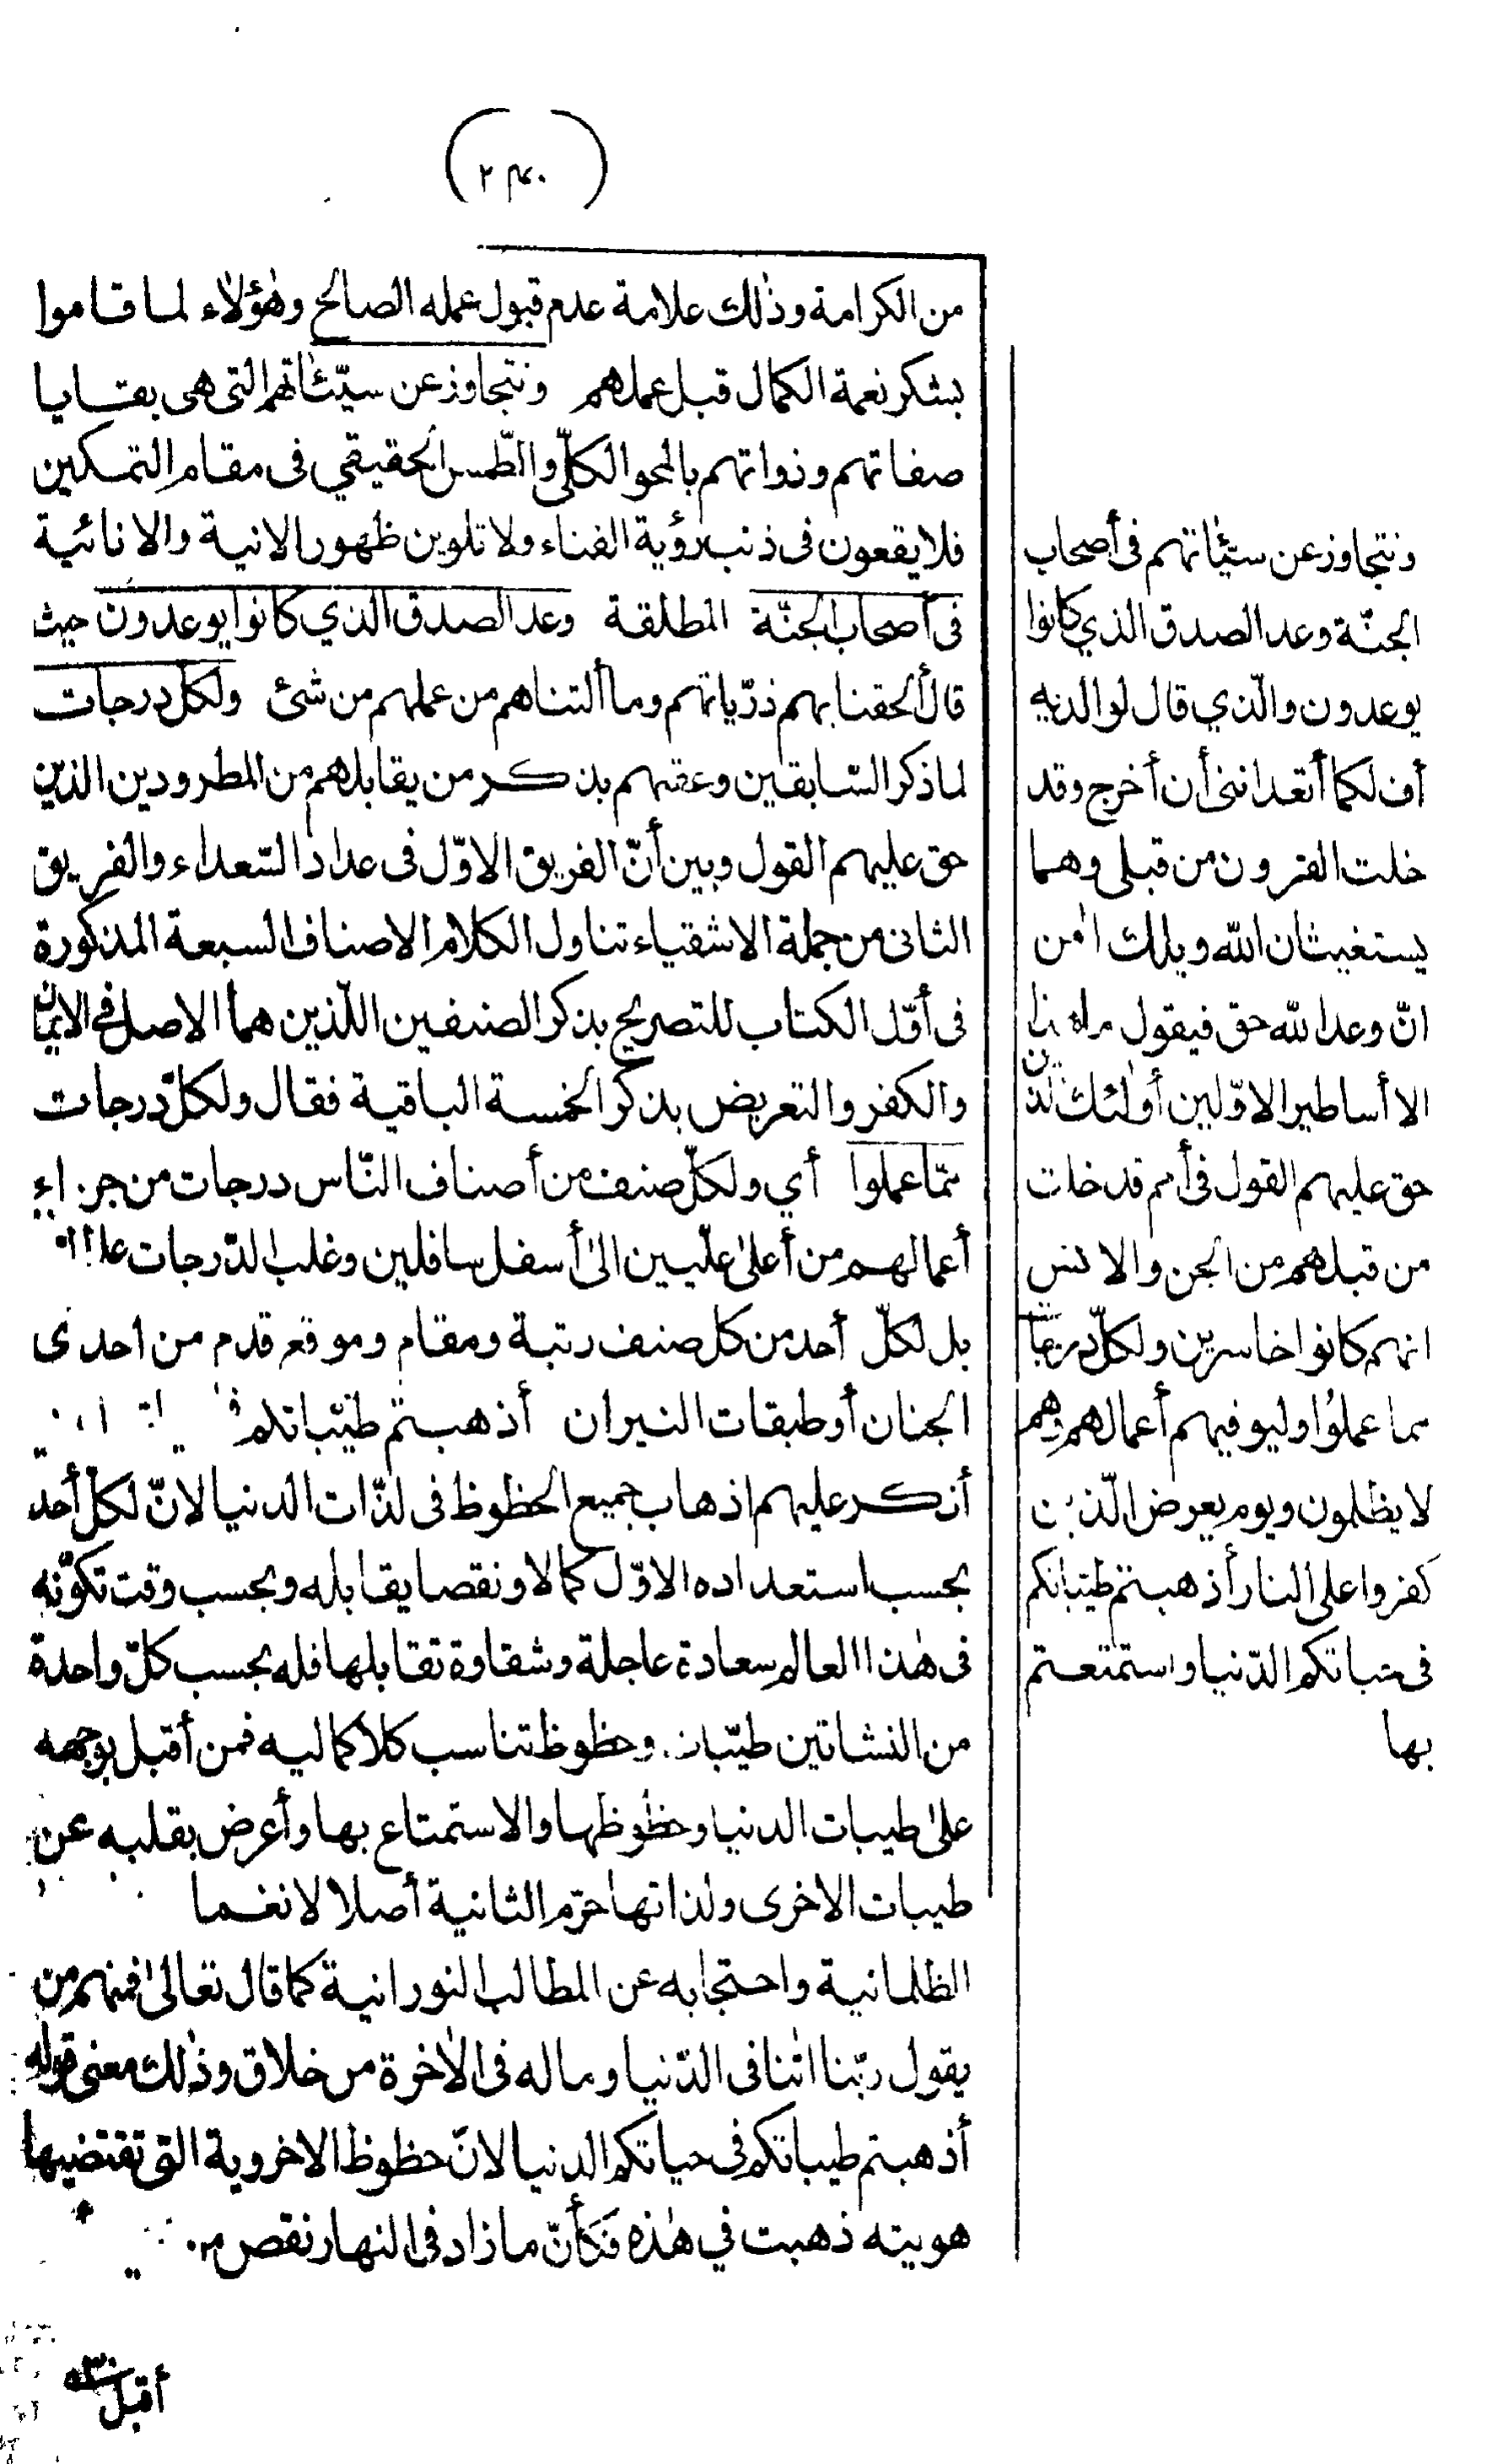 (٢٤٠)
من الكرامة وذٰلك علامة عدم قبول عمله الصالح وهٰؤلاء لما قاموا
بشكر نعمة الكمال قبل عملهم ونتجاوز عن سيّئاتهم التى هى بقايا
صفاتهم وذواتهم بالمحو الكلّى والطّمس الحقيقي فى مقام التمكين
فلا يقعون فى ذنب رؤية الفناء ولا تلوين ظهور الانية والانائية
فى أصحاب الجنّة المطلقة وعد الصدق الذي كانوا يوعدون حيث
قال ألحقنا بهم ذرّياتهم وما ألتناهم من عملهم من شئ ولكلّ درجات
لما ذكر السّابقين وعقبهم بذكر من يقابلهم من المطرودين الذين
حق عليهم القول وبين أنّ الفريق الاوّل فى عداد السّعداء والفريق
الثانى من جملة الاشقياء تناول الكلام الاصناف السبعة المذكورة
فى أوّل الكتاب للتصريح بذكر الصنفين اللّذين هما الاصل فى الايمان
والكفر والتعريض بذكر الخمسة الباقية فقال ولكلّ درجات
ممّا عملوا أي ولكلّ صنف من أصناف النّاس درجات من جزاء
أعمالهم من أعلىٰ علّيين الىٰ أسفل سافلين وغلب الدّرجات
بل لكلّ أحد من كل صنف رتبة ومقام وموقع قدم من احدى
الجنان أو طبقات النيران أذهبتم طيّباتكم
أنكر عليهم اذهاب جميع الحظوظ فى لذّات الدنيا لانّ لكلّ أحد
بحسب استعداده الاوّل كمالا ونقصا يقابله وبحسب وقت تكوّنه
فى هٰذا العالم سعادة عاجلة وشقاوة تقابلها فله بحسب كلّ واحدة
من النشاتين طيّبات وحظوظ تناسب كلا كماليه فمن أقبل بوجهه
علىٰ طيبات الدنيا وحظوظها والاستمتاع بها وأعرض بقلبه عن
طيبات الاخرى ولذاتها حرّم الثانية أصلا لانغما
الظلمانية واحتجابه عن المطالب النورانية كما قال تعالىٰ فمنهم من
يقول ربّنا اٰتنا فى الدّنيا وما له فى الاٰخرة من خلاق وذٰلك معنى قوله
أذهبتم طيباتكم فى حياتكم الدنيا لانّ حظوظ الاخروية التى تقتضيها
هويته ذهبت في هٰذه فَكَأنّ ما زاد فى النهار نقص من
أقبل
ونتجاوز عن سيّئاتهم فى أصحاب
الجنّة وعد الصدق الذي كانوا
يوعدون والّذي قال لوالديه
أف لكما أتعداننى أن أخرج وقد
خلت القرون من قبلى وهما
يستغيثان اللّه ويلك اٰمن
انّ وعد اللّه حق فيقول ما هذا
الا أساطير الاوّلين أولٰئك الذين
حق عليهم القول فى أمم قد خلت
من قبلهم من الجن والانس
انهم كانوا خاسرين ولكلّ درجات
مما عملوا وليوفيهم أعمالهم وهم
لا يظلمون ويوم يعرض الّذين
كفروا على النار أذهبتم طيباتكم
فى حياتكم الدّنيا واستمتعتم
بها